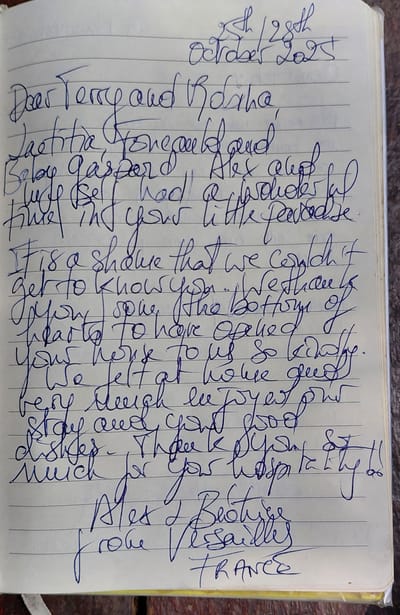 25th/28th
October 2025
Dear Terry and Robina,
Laetitia, and
Baby Gaspard, Alex and
myself had a wonderful
time in your little paradise.
It is a shame that we couldn't
get to know you. We thank
you from the bottom of
hearts to have opened
your home to us so kindly.
We felt at home and
very much enjoyed our
stay and your good
dishes. Thank you so
much for your hospitality!
Alex & Béatrice
from Versailles
FRANCE